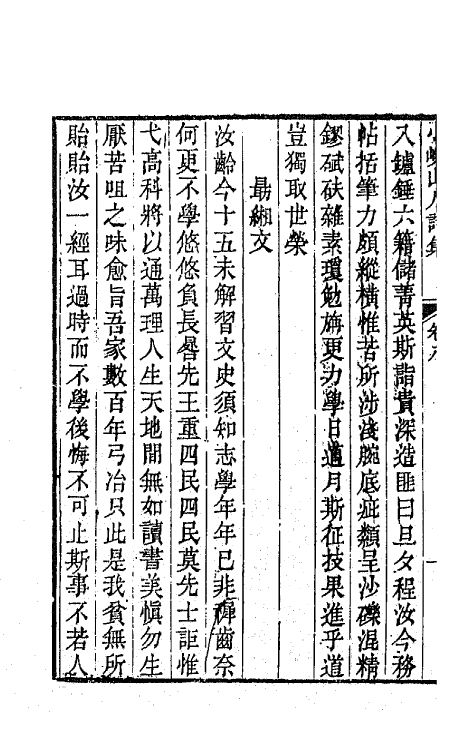 入鑪錘六籍儲菁英斯詣貴深造匪曰旦夕程汝今務
帖括筆力頗縱橫惟苦所涉淺腕底疵纇呈沙礫混精
鏐碔砆雜素瓊勉旃更力學日邁月斯征技果進乎道
豈獨取世榮
勗緗文
汝齡今十五未解習文史須知志學年年已非稺齒奈
何更不學悠悠負長晷先王重四民四民莫先士詎惟
弋高科將以通萬理人生天地間無如讀書美慎勿生
厭苦咀之味愈旨吾家數百年弓冶只此是我貧無所
貽貽汝一經耳過時而不學後悔不可止斯事不若人